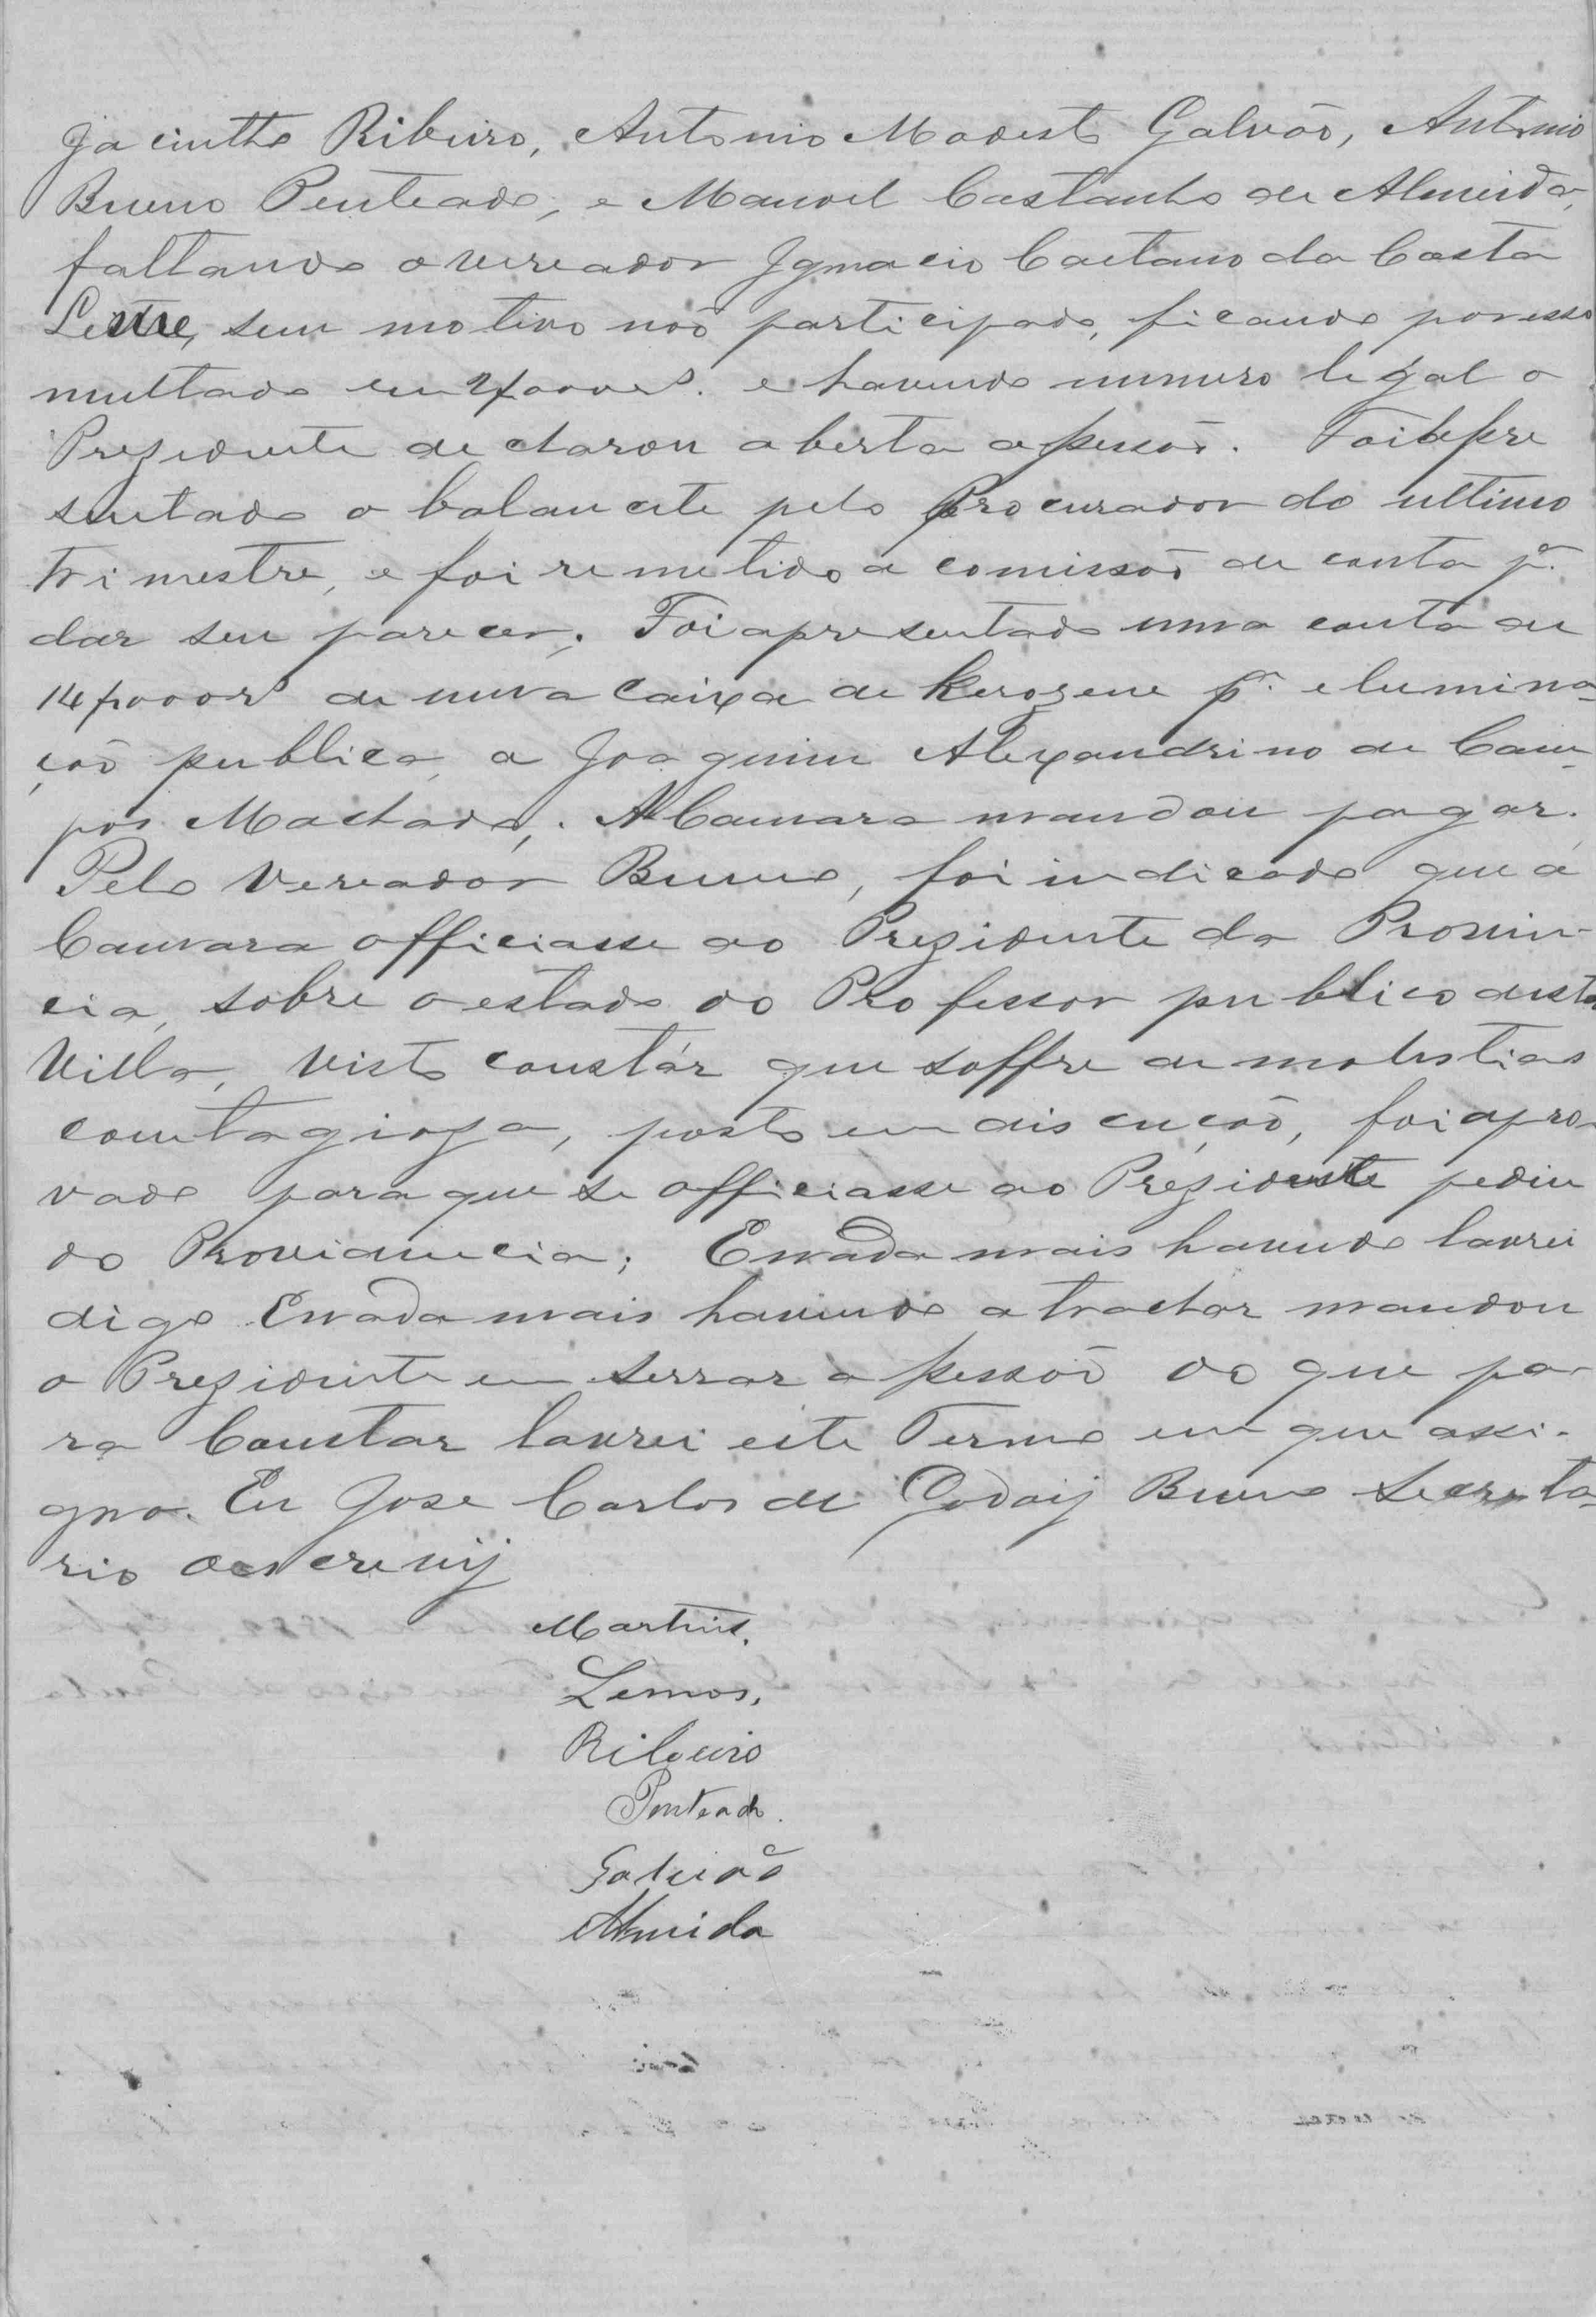 Jacintho Ribeiro, Antonio Modesto Galvaõ, Antonio
Bueno Penteado, e Manoel Castanho de Almeida,
faltando o vereador Ignacio Caetano da Costa
sem motivo naõ participado, ficando por esso
multado em e havendo numero legal o
Prezidente declarou aberta a sessaõ. Foi apre
sentado o balancete pelo Procurador do ultimo
trimestre, e foi remetido a comissaõ de conta pª.
dar seu parecer. Foi apresentado uma conta de
14$000rs de uma caixa de Kerozene pª. elumina-
çaõ publica, a Joaquim Alexandrino de Cam-
pos Machado,. A Camara mandou pagar.
Pelo Vereador Bueno, foi indicado que á
Camara officiasse ao Prezidente da Provin-
cia, sobre o estado do Professor publico desta
Villa, visto constár que soffre de molestias
contagioza, posto em discuçaõ, foi apro-
vado para que se officiasse ao Prezidente pedin
do Providencia; E nada mais havendo lavrei
digo E nada mais havendo a tractar mandou
o Prezidente em serrar a sessaõ do que pa-
ra Constar lavrei este Termo em que assi-
gno. Eu Jose Carlos de Godoij Bueno Secreta-
rio o escrevij
Martins.
Lemos,
Ribeiro
Penteado.
Galvaõ
Almeida